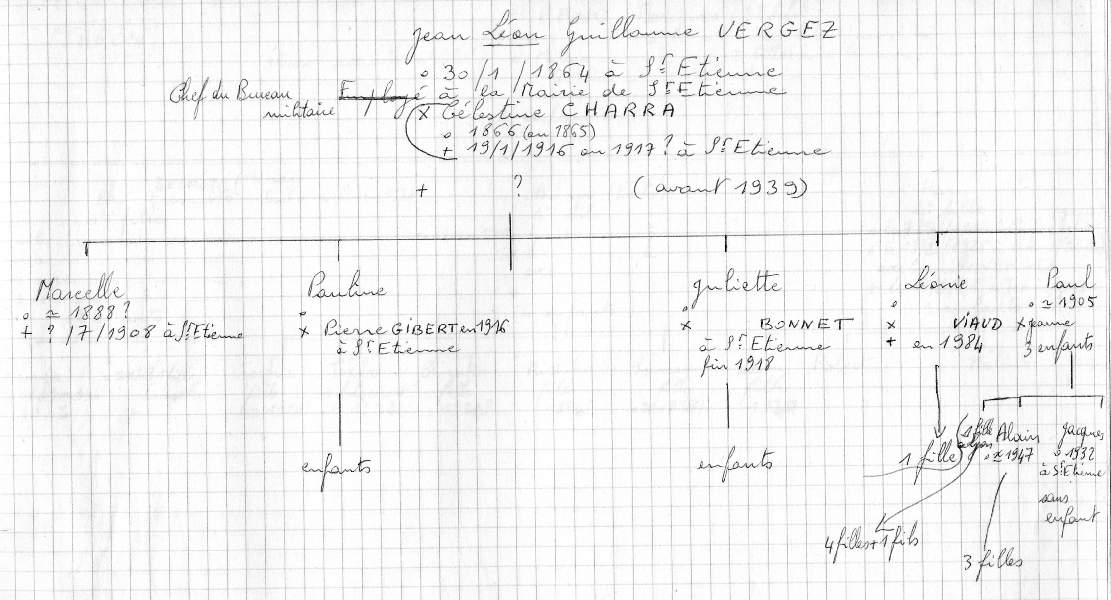 Jean Léon Guillaume VERGEZ
o 30/1/1864 à St Etienne
Chef du Bureau militaire Employé à la Mairie de St Etienne
x Célestine CHARRA
o 1866 (ou 1865)
+ 19/1/1916 ou 1917 ? à St Etienne
+ ? (avant 1939)
Marcelle
o ≃ 1888 ?
+ ? /7/1908 à St Etienne
Pauline
o
x Pierre GIBERT en 1916
à St Etienne
enfants
Juliette
o
x BONNET
à St Etienne
fin 1918
enfants
Léonie
o
x VIAUD
+ en 1984
1 fille
Paul
o ≃ 1905
x Jeanne
3 enfants
(1 fille
4 filles + 1 fils
Alain
o ≃ 1947
3 filles
Jacques
o 1932
à St Etienne
sans
enfant